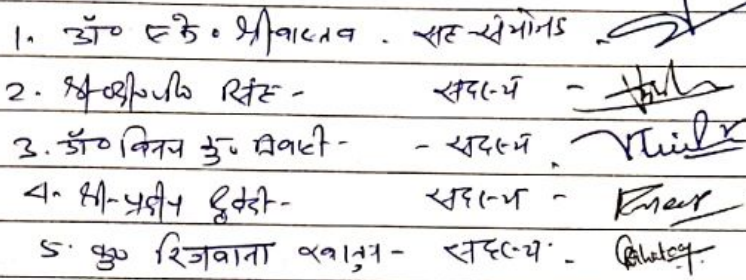 1. डॉ० एस०के० श्रीवास्तव - सह-संयोजक -
2. श्री सिंह - सदस्य -
3. डॉ० विनय कु० तिवारी - - सदस्य -
4. श्री प्रदीप द्विवेदी - सदस्य -
5. कु० रिजवाना खातुन - सदस्य -